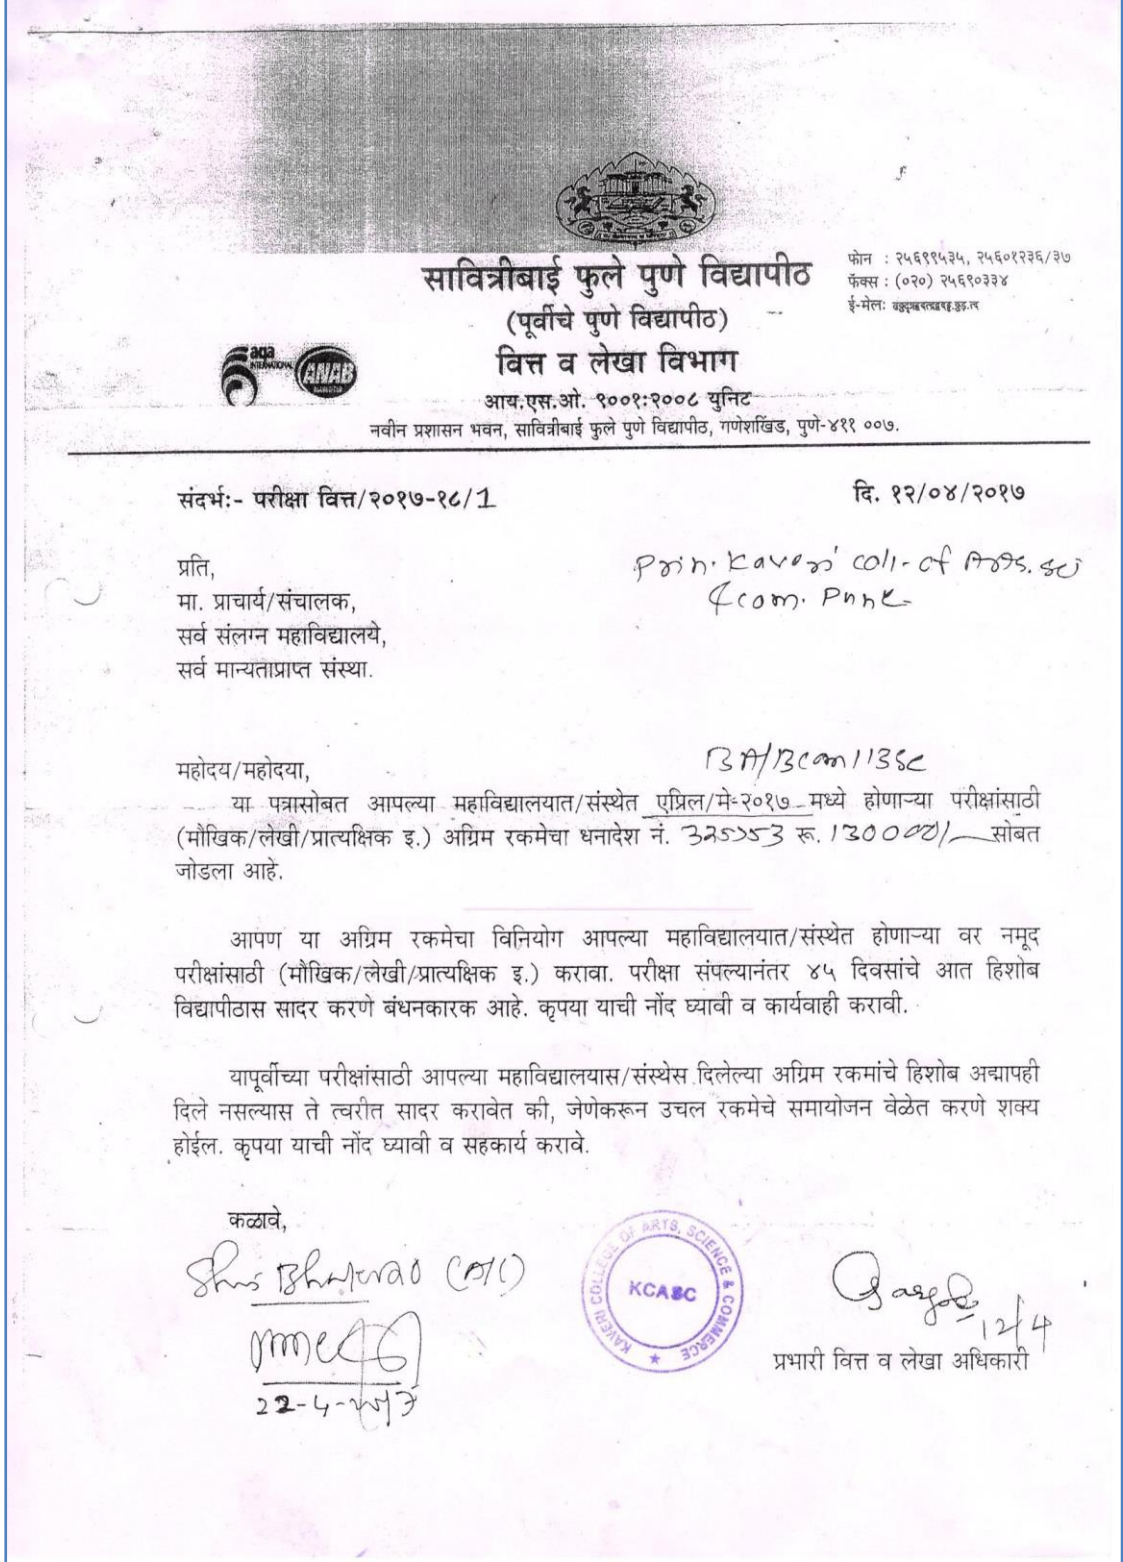 सावित्रीबाई फुले पुणे विद्यापीठ
(पूर्वीचे पुणे विद्यापीठ)
वित्त व लेखा विभाग
आय.एस.ओ. ९००१:२००८ युनिट
नवीन प्रशासन भवन, सावित्रीबाई फुले पुणे विद्यापीठ, गणेशखिंड, पुणे-४११ ००७.
फोन : २५६९९५३५, २५६०१२३६/३७
फॅक्स : (०२०) २५६९०३३४
ई-मेल:
aqa
INTERNATIONAL
ANAB
संदर्भ:- परीक्षा वित्त/२०१७-१८/1
दि. १२/०४/२०१७
प्रति,
मा. प्राचार्य/संचालक,
सर्व संलग्न महाविद्यालये,
सर्व मान्यताप्राप्त संस्था.
Prin. Kaveri coll. of Arts. sci
& com. Pune
महोदय/महोदया,
BA/BCom/BSc
या पत्रासोबत आपल्या महाविद्यालयात/संस्थेत एप्रिल/मे-२०१७ मध्ये होणाऱ्या परीक्षांसाठी
(मौखिक/लेखी/प्रात्यक्षिक इ.) अग्रिम रकमेचा धनादेश नं. रू. 130000/- सोबत
जोडला आहे.
आपण या अग्रिम रकमेचा विनियोग आपल्या महाविद्यालयात/संस्थेत होणाऱ्या वर नमूद
परीक्षांसाठी (मौखिक/लेखी/प्रात्यक्षिक इ.) करावा. परीक्षा संपल्यानंतर ४५ दिवसांचे आत हिशोब
विद्यापीठास सादर करणे बंधनकारक आहे. कृपया याची नोंद घ्यावी व कार्यवाही करावी.
यापूर्वीच्या परीक्षांसाठी आपल्या महाविद्यालयास/संस्थेस दिलेल्या अग्रिम रकमांचे हिशोब अद्यापही
दिले नसल्यास ते त्वरीत सादर करावेत की, जेणेकरून उचल रकमेचे समायोजन वेळेत करणे शक्य
होईल. कृपया याची नोंद घ्यावी व सहकार्य करावे.
कळावे,
22-4-2017
KAVERI COLLEGE OF ARTS, SCIENCE & COMMERCE
KCASC
12/4
प्रभारी वित्त व लेखा अधिकारी